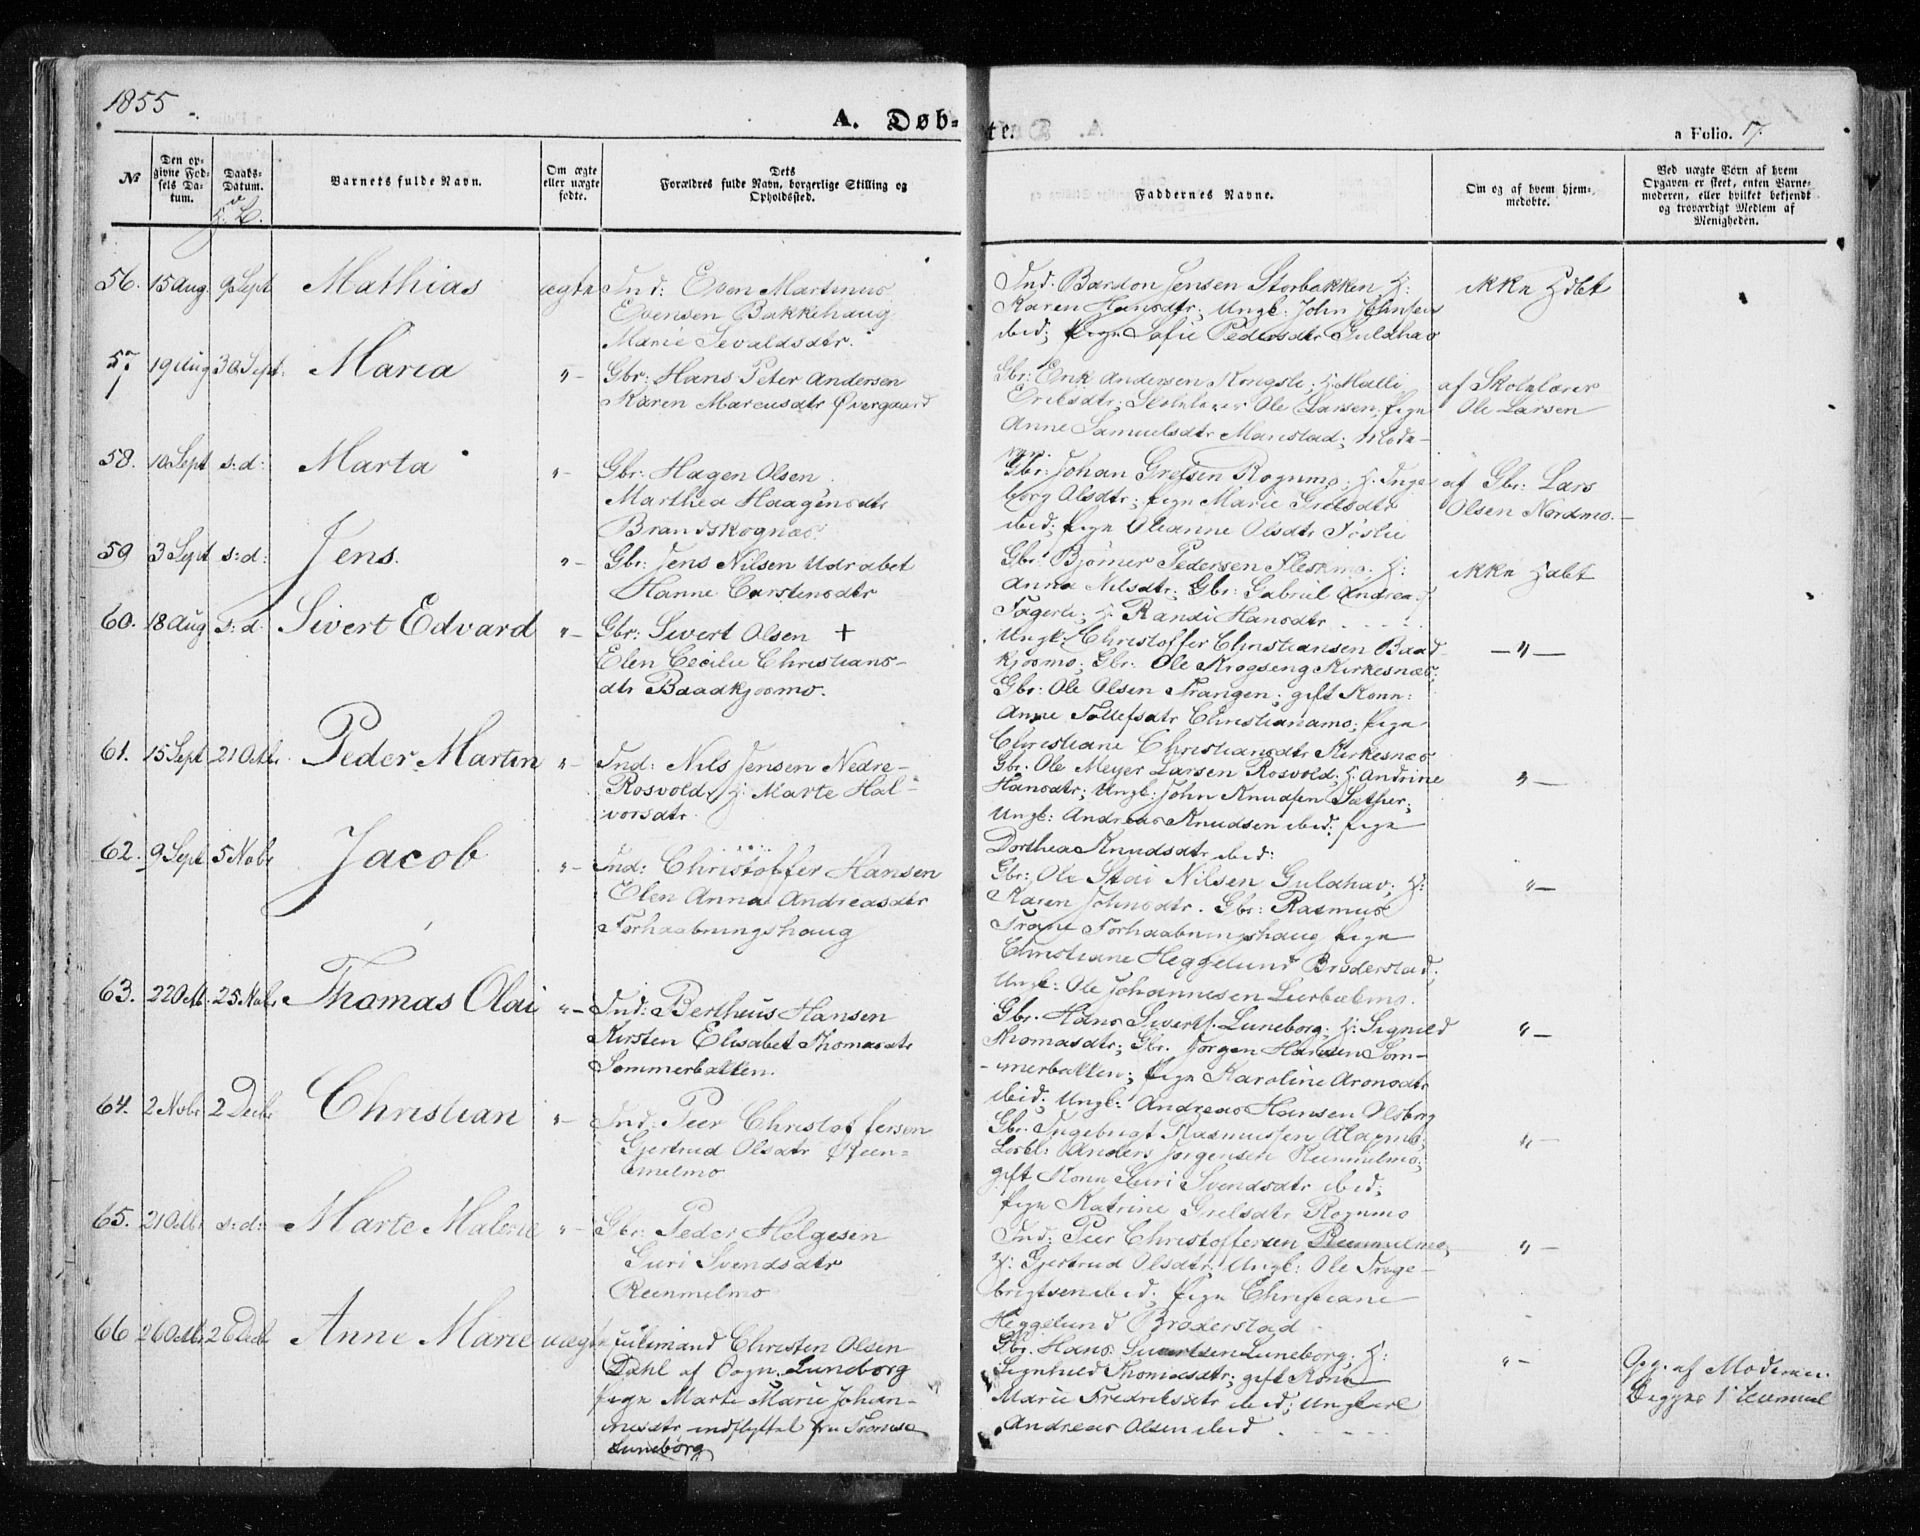 1855
A. Døb-
te.
a Folio. 17.
№
Den op-
givne Fød-
sels Da-
tum.
Daabs-
Datum.
Barnets fulde Navn.
Om ægte
eller uægte
fødte.
Dets
Forældres fulde Navn, borgerlige Stilling og
Opholdssted.
Faddernes Navne.
Om og af hvem hjem-
medøbte.
Ved uægte Børn af hvem
Opgaven er skeet, enten Barne-
moderen, eller hvilket bekjendt
og troværdigt Medlem af
Menigheden.
56. 15 Aug 9 Sept Mathias ægte
Ind: Even Martinus
Evensen Bakkehaug
Marie Sevaldsdtr.
Ind: Bardon Jensen Storbakken H:
Karen Hansdtr; Ungk: John Johnsen
ibid; Pige Sofie Pedersdtr Guldhav
ikke Hdbt
57 19 Aug 30 Sept: Maria "-
Gbr: Hans Peter Andersen
Karen Marcusdtr Øvergaard
Gbr: Erik Andersen Kongsli; H: Malli
Eriksdtr; Skolelærer Ole Larsen; Pige
Anne Samuelsdtr Marestad; Mode-
ren.
af Skolelærer
Ole Larsen
58. 10 Sept s:d: Marta "-
Gbr: Hagen Olsen
Marthea Haagensdtr
Brandskognæs
Gbr: Johan Grelsen Rognmo; H: Inge
borg Olsdtr; Pige Marie Grelsdtr
ibid; Pige Oleanne Olsdtr Foslie
af Gbr: Lars
Olsen Nordmo.
59 3 Sept s:d: Jens. "-
Gbr: Jens Nilsen Udrabet
Hanne Carstensdtr
Gbr: Bjørner Pedersen Fleskmo. H:
Anna Nilsdtr; Gbr: Gabriel Andreas
Fagerli; H: Randi Hansdtr
ikke Hdbt
60. 18 Aug s:d. Sivert Edvard "-
Gbr: Sivert Olsen +
Elen Cecilie Christians-
dtr Baadkjosmo.
Ungk: Christoffer Christiansen Baad
kjosmo; Gbr: Ole Krogseng Kirkesnæs;
Gbr: Ole Olsen Frangen; gift Kone:
Anne Tollefsdtr Christianamo; Pige
Christiane Christiansdtr Kirkesnæs
-"-
61. 15 Sept 21 Octbr. Peder Martin "-
Ind: Nils Jensen Nedre-
Rosvold, H: Marte Hal-
vorsdtr.
Gbr. Ole Meyer Larsen Rosvold; H: Andrine
Hansdtr; Ungk: John Knudsen Sæther;
Ungk: Andreas Knudsen ibid; Pige
Dorthea Knudsdtr ibid:
"-
62. 9 Sept 5 Nobr Jacob "-
Ind: Christoffer Hansen
Elen Anna Andreasdtr
Forhaabningshaug
Gbr: Ole Stai Nilsen Guldhav; H:
Karen Johnsdtr. Gbr: Rasmus
Trane Forhaabningshaug Pige
Christiane Heggelund Brøderstad;
Ungk: Ole Johannesen Lierbælmo.
"-
63. 22 Octb. 25 Nobr Thomas Olai "-
Ind: Bertheus Hansen
Kirsten Elisabet Thomasdtr
Sommerbakken.
Gbr. Hans Sivertsf. Luneborg; H: Signild
Thomasdtr; Gbr. Jørgen Hansen Som-
merbakken; Pige Karoline Aronsdtr
ibid; Ungk: Andreas Hansen Olsborg
"-
64. 2 Nobr 2 Decbr Christian "-
Ind: Peer Christoffersen
Gjertrud Olsdtr Reen-
melmo
Gbr. Ingebrigt Rasmussen Alapmo,
Losk: Anders Jørgensen Renmelmo;
gift Kone Siri Svendsdtr ibid;
Pige Katrine Grelsdtr Rognmo
"-
65. 21 Octbr s:d: Marte Malena "-
Gbr: Peder Helgesen
Siri Svendsdtr
Reenmelmo
Ind: Peer Christoffersen Reenmelmo,
H: Gjertrud Olsdtr; Ungk: Ole Inge-
brigtsen ibid; Pige Christiane
Heggelund Brøderstad
"-
66 26 Octbr 26 Decbr Anne Marie uægte
Christen Olsen
Dahl af Sogn Luneborg
Pige Marte Marie Johan-
nesdtr indflyttet fra Tromsø
Luneborg
Gbr. Hans Sivertsen Luneborg; H:
Signhild Thomasdtr; gift Kone
Marie Fredriksdtr ibid; Ungkarl
Andreas Olsen ibid
"-
Opg. af Moderen.